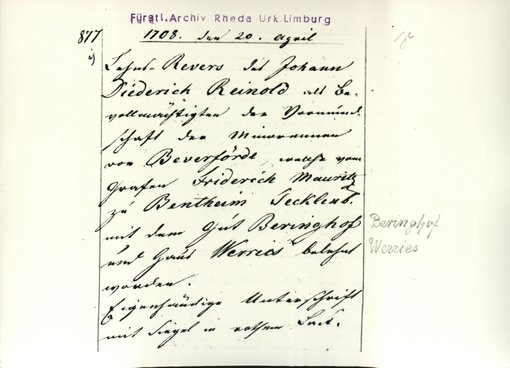 Fürstl. Archiv Rheda Urk. Limburg
877
1708. den 20. April
Lehns-Revers des Johann
Diederich Reinold als Be-
vollmächtigten der Vormund-
schaft der Minorennen
von Beverförde, welche vom
Grafen Friderich Mauritz
zu Bentheim Tecklenb.
mit dem Gut Beringhof
und Haus Werries belehnt
worden.
Eigenhändige Unterschrift
mit Siegel in rothem Lack.
Beringhof
Werries